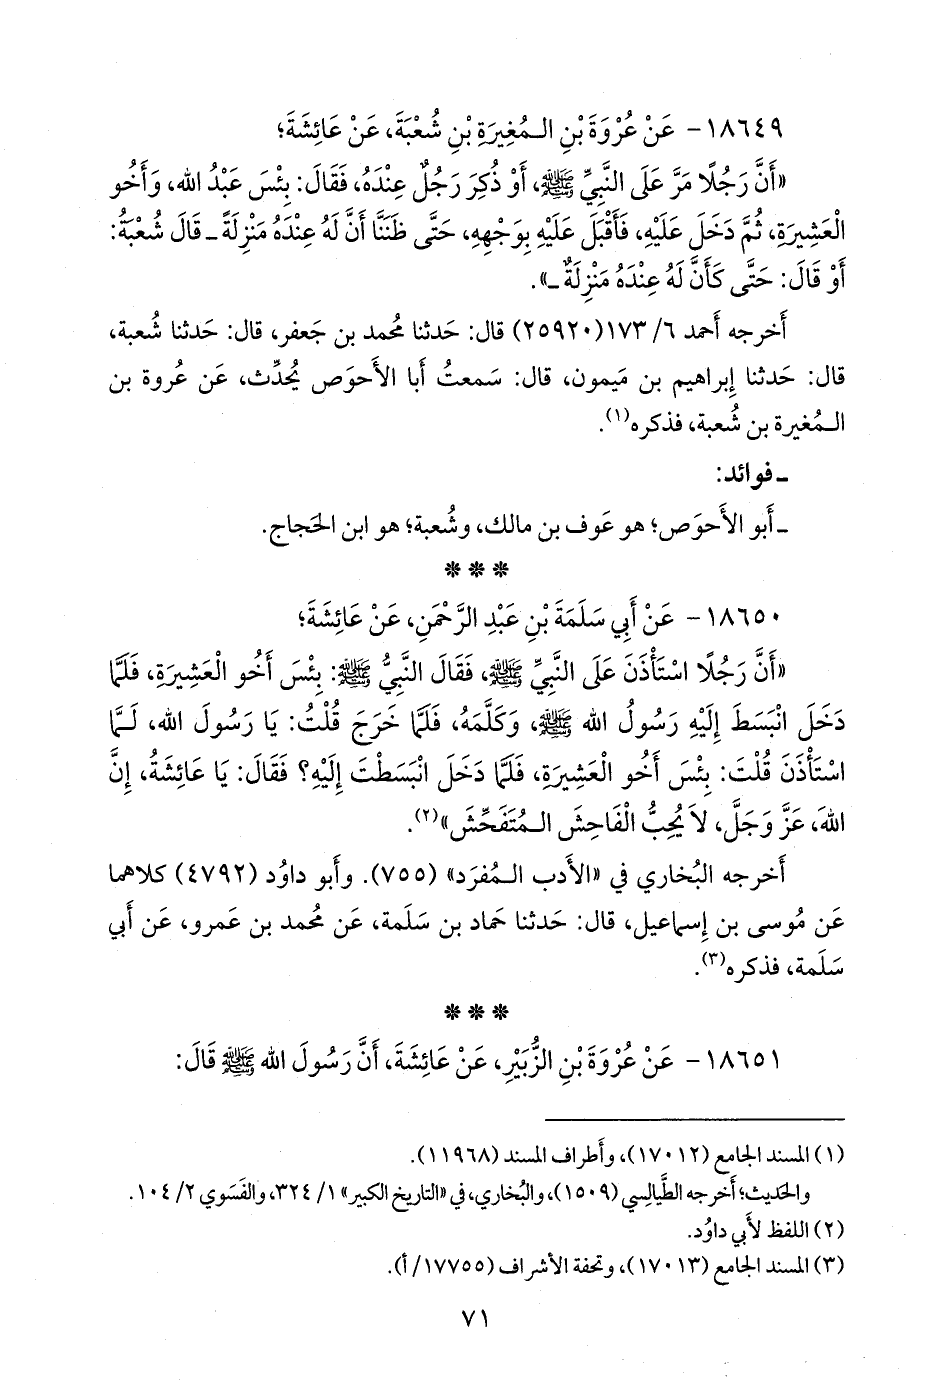 ١٨٦٤٩- عَنْ عُرْوَةَ بْنِ الـمُغِيرَةِ بْنِ شُعْبَةَ، عَنْ عَائِشَةَ؛
«أَنَّ رَجُلًا مَرَّ عَلَى النَّبِيِّ ﷺ، أَوْ ذُكِرَ رَجُلٌ عِنْدَهُ، فَقَالَ: بِئْسَ عَبْدُ الله، وَأَخُو
الْعَشِيرَةِ، ثُمَّ دَخَلَ عَلَيْهِ، فَأَقْبَلَ عَلَيْهِ بِوَجْهِهِ، حَتَّى ظَنَنَّا أَنَّ لَهُ عِنْدَهُ مَنْزِلَةً ـ قَالَ شُعْبَةُ:
أَوْ قَالَ: حَتَّى كَأَنَّ لَهُ عِنْدَهُ مَنْزِلَةٌ ـ».
أَخرجه أَحمد ٦/ ١٧٣(٢٥٩٢٠) قال: حَدثنا مُحمد بن جَعفر، قال: حَدثنا شُعبة،
قال: حَدثنا إِبراهيم بن مَيمون، قال: سَمعتُ أَبا الأَحوَص يُحدِّث، عَن عُروة بن
الـمُغيرة بن شُعبة، فذكره(١).
ـ فوائد:
ـ أَبو الأَحوَص؛ هو عَوف بن مالك، وشُعبة؛ هو ابن الحَجاج.
* * *
١٨٦٥٠- عَنْ أَبِي سَلَمَةَ بْنِ عَبْدِ الرَّحْمَنِ، عَنْ عَائِشَةَ؛
«أَنَّ رَجُلًا اسْتَأْذَنَ عَلَى النَّبِيِّ ﷺ، فَقَالَ النَّبِيُّ ﷺ: بِئْسَ أَخُو الْعَشِيرَةِ، فَلَمَّا
دَخَلَ انْبَسَطَ إِلَيْهِ رَسُولُ الله ﷺ، وَكَلَّمَهُ، فَلَمَّا خَرَجَ قُلْتُ: يَا رَسُولَ الله، لَـمَّا
اسْتَأْذَنَ قُلْتَ: بِئْسَ أَخُو الْعَشِيرَةِ، فَلَمَّا دَخَلَ انْبَسَطْتَ إِلَيْهِ؟ فَقَالَ: يَا عَائِشَةُ، إِنَّ
اللهَ، عَزَّ وَجَلَّ، لاَ يُحِبُّ الْفَاحِشَ الـمُتَفَحِّشَ»(٢).
أَخرجه البُخاري في «الأَدب الـمُفرَد» (٧٥٥). وأَبو داوُد (٤٧٩٢) كلاهما
عَن مُوسى بن إِسماعيل، قال: حَدثنا حَماد بن سَلَمة، عَن مُحمد بن عَمرو، عَن أَبي
سَلَمة، فذكره(٣).
* * *
١٨٦٥١- عَنْ عُرْوَةَ بْنِ الزُّبَيْرِ، عَنْ عَائِشَةَ، أَنَّ رَسُولَ الله ﷺ قَالَ:
(١) المسند الجامع (١٧٠١٢)، وأَطراف المسند (١١٩٦٨).
والحَدِيث؛ أَخرجه الطَّيالِسي (١٥٠٩)، والبُخاري، في «التاريخ الكبير» ١/ ٣٢٤، والفَسَوي ٢/ ١٠٤.
(٢) اللفظ لأَبي داوُد.
(٣) المسند الجامع (١٧٠١٣)، وتحفة الأشراف (١٧٧٥٥/ أ).
٧١